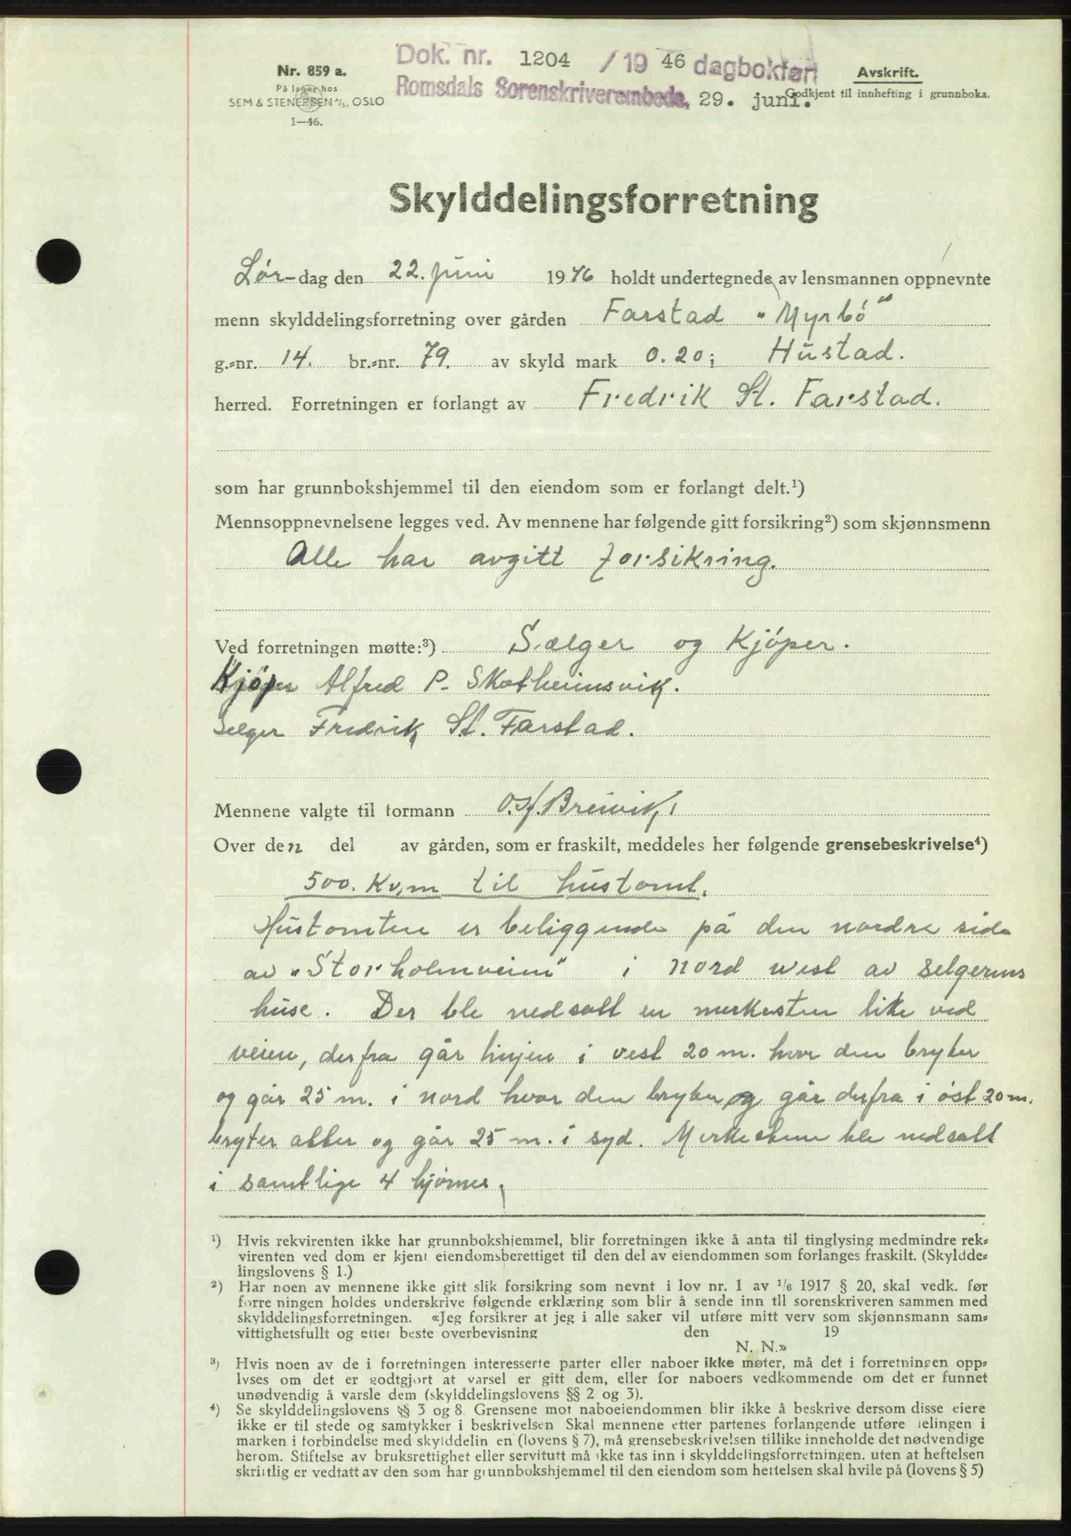 Dok. nr. 1204 / 19 46 dagbokført
Romsdals Sorenskriverembede, 29. juni.
Nr. 859 a.
På lager hos
SEM & STENERSEN A/S, OSLO
1—46.
Avskrift.
Godkjent til innhefting i grunnboka.
Skylddelingsforretning
Lør-dag den 22. juni 1946 holdt undertegnede av lensmannen oppnevnte
menn skylddelingsforretning over gården Farstad "Myrbö"
g.-nr. 14. br.-nr. 79. av skyld mark 0.20 i Hustad.
herred. Forretningen er forlangt av Fredrik St. Farstad.
som har grunnbokshjemmel til den eiendom som er forlangt delt.¹)
Mennsoppnevnelsene legges ved. Av mennene har følgende gitt forsikring²) som skjønnsmenn
Alle har avgitt forsikring.
Ved forretningen møtte:³) Sælger og Kjöper.
Kjöper Alfred P. Skotheimsvik.
Selger Fredrik St. Farstad.
Mennene valgte til formann O. Breivik,
Over den del av gården, som er fraskilt, meddeles her følgende grensebeskrivelse⁴)
500. Kv.m til hustomt.
Hustomten er beliggende på den nordre side
av "Storholmveien" i nord west av selgerens
huse. Der ble nedsatt en merkesten like ved
veien, derfra går linjen i vest 20 m. hvor den bryter
og går 25 m. i nord hvor den bryter og går derfra i öst 20 m.
bryter atter og går 25 m. i syd. Merkestene ble nedsatt
i samtlige 4 hjörner,
¹) Hvis rekvirenten ikke har grunnbokshjemmel, blir forretningen ikke å anta til tinglysing medmindre rek-
virenten ved dom er kjent eiendomsberettiget til den del av eiendommen som forlanges fraskilt. (Skyldde-
lingslovens § 1.)
²) Har noen av mennene ikke gitt slik forsikring som nevnt i lov nr. 1 av 1/6 1917 § 20, skal vedk. før
forretningen holdes underskrive følgende erklæring som blir å sende inn til sorenskriveren sammen med
skylddelingsforretningen. «Jeg forsikrer at jeg i alle saker vil utføre mitt verv som skjønnsmann sam-
vittighetsfullt og etter beste overbevisning den 19
N. N.»
³) Hvis noen av de i forretningen interesserte parter eller naboer ikke møter, må det i forretningen opp-
lyses om det er godtgjort at varsel er gitt dem, eller for naboers vedkommende om det er funnet
unødvendig å varsle dem (skylddelingslovens §§ 2 og 3).
⁴) Se skylddelingslovens §§ 3 og 8. Grensene mot naboeiendommen blir ikke å beskrive dersom disse eiere
ikke er til stede og samtykker i beskrivelsen Skal mennene etter partenes forlangende utføre delingen i
marken i forbindelse med skylddelingen (lovens § 7), må grensebeskrivelsen tillike inneholde det nødvendige
herom. Stiftelse av bruksrettighet eller servitutt må ikke tas inn i skylddelingsforretningen, uten at heftelsen
skriftlig er vedtatt av den som har grunnbokshjemmel til den eiendom som heftelsen skal hvile på (lovens § 5)